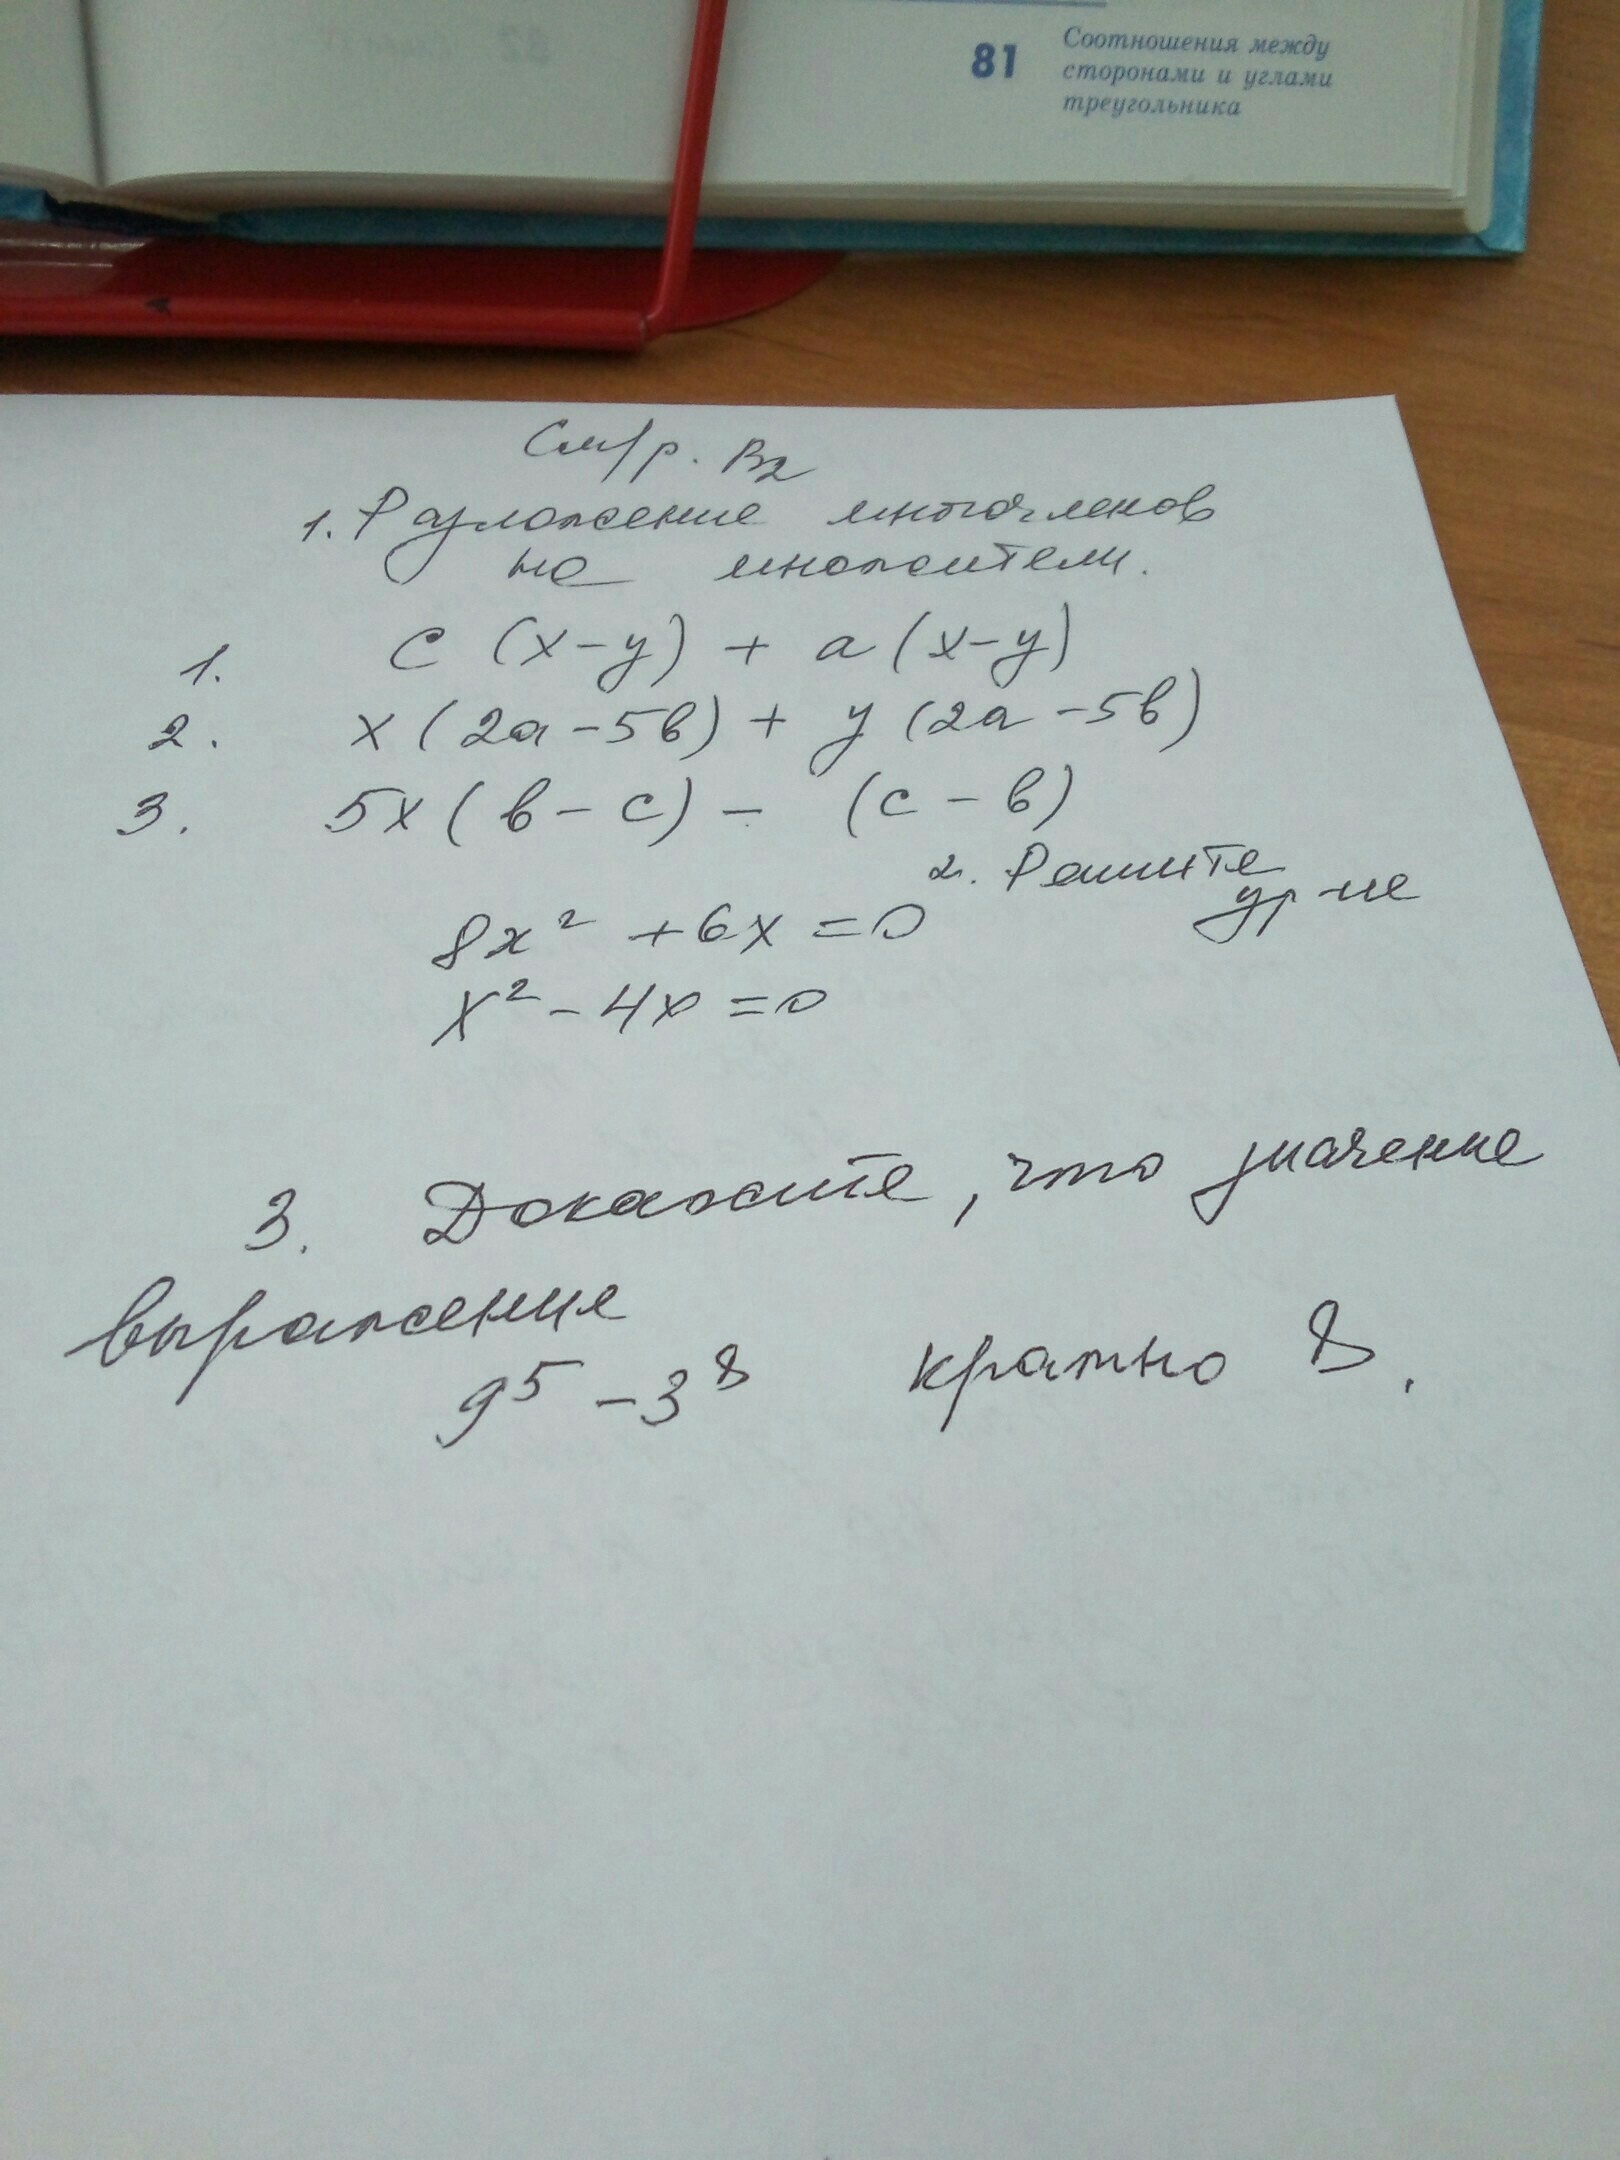 81 Соотношения между
сторонами и углами
треугольника
См/р. В2
1. Разложение многочленов
на множители.
1. c (x-y) + a (x-y)
2. x (2a-5в) + y (2a-5в)
3. 5x (в-c) - (c-в)
2. Решите
ур-ие
8x² +6x =0
x² -4x =0
3. Докажите, что значение
выражения
9⁵ - 3⁸ кратно 8.